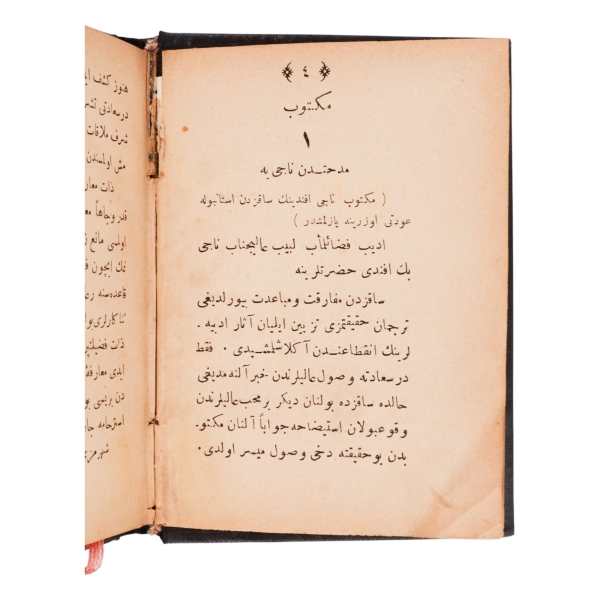 ٤
مكتوب
١
مدحتدن ناجی‌یه
( مكتوب ناجی افندینك ساقزدن استانبوله
عودتی اوزرینه یازلمشدر )
ادیب فضائلمأب لبیب عالیجناب ناجی
بك افندی حضرتلرینه
ساقزدن مفارقت و مباعدت بیورلدیغی
ترجمان حقیقتمزی تزیین ایلیان آثار ادبیه ـ
لرینك انقطاعندن آكلاشلمشیدی . فقط
درسعادته وصول عالیلرندن خبر آلنه‌مدیغی
حالده ساقزده بولنان دیكر بر محب عالیلرندن
وقوعبولان استیضاحه جواباً آلنان مكتو ـ
بدن بو حقیقته دخی وصول میسر اولدی .
هنوز كشف
درسعادتی
شرف ملاقات
مش اولسندن
ذات معار
قدر وجاهاً
اولسی مانع
تمك ایچون
قاعده‌سنه
ثناكارلری
ذات فضیلت
ایدی معارف
دن بریسی بو
استرحامه